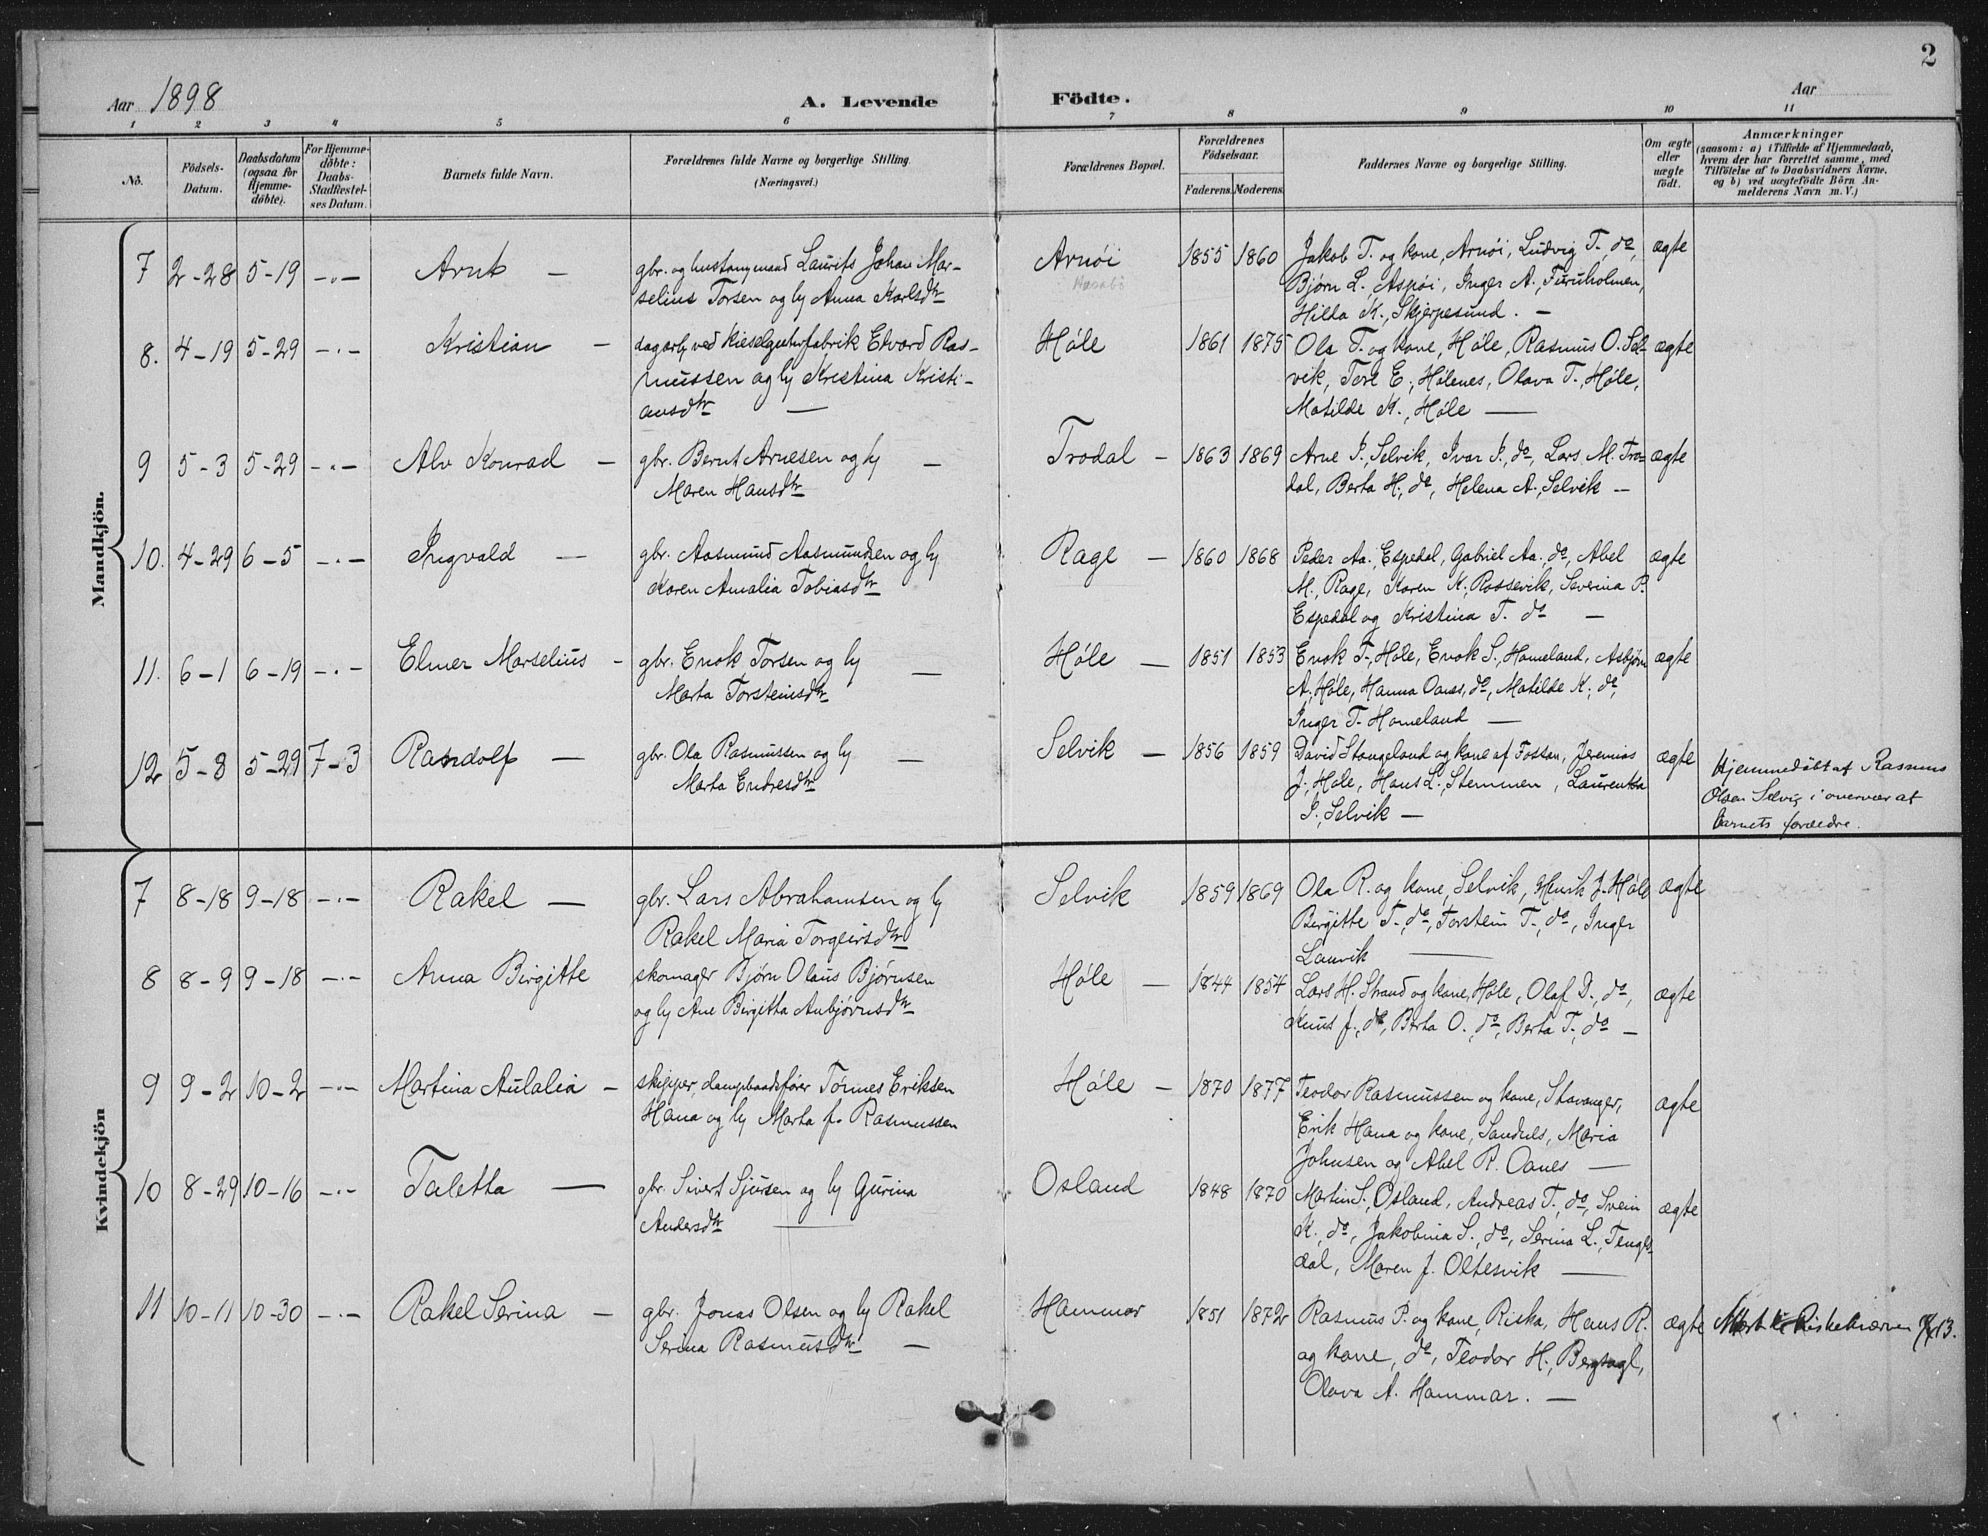 2
Aar 1898
A. Levende Födte.
Aar
1 2 3 4 5 6 7 8 9 10 11
No.
Födsels-Datum.
Daabsdatum (ogsaa for Hjemme-döbte).
For Hjemme-döbte: Daabs-Stadfæstel-ses Datum.
Barnets fulde Navn.
Forældrenes fulde Navne og borgerlige Stilling.
(Næringsvei.)
Forældrenes Bopæl.
Forældrenes Födselsaar.
Faderens. Moderens.
Faddernes Navne og borgerlige Stilling.
Om ægte eller uægte födt.
Anmærkninger
(saasom: a) i Tilfælde af Hjemmedaab,
hvem der har forrettet samme, med
Tilföielse af to Daabsvidners Navne,
og b) ved uægtefödte Börn An-
melderens Navn m. V.)
Mandkjön.
7 2-28 5-19 -"- Arnt — gbr. og hustomymand Laurits Johan Mar- Arnøi 1855 1860 Jakob T. og kone, Arnøi, Ludvig T., do, ægte
selius Torsen og h Anna Karlsdtr Bjørn L., Aspøi, Inger A., Furuholmen,
Hilda K., Skjerpesund. —
8. 4-19 5-29 -"- Kristian — dagarb ved Kieselguhrfabrik Edvard Ras- Høle 1861 1875 Ola T. og kone, Høle, Rasmus O. Sel- ægte
mussen og h Kristina Kristi- vik, Tore E., Hølenes, Olava T., Høle,
ansdtr — Matilde K., Høle —
9 5-3 5-29 -"- Alv Konrad — gbr. Bernt Arnesen og h — Trodal — 1863 1869 Arne I., Selvik, Ivar I., do, Lars M. Tro- ægte
Maren Hansdtr dal, Berta H., do, Helena A., Selvik —
10. 4-29 6-5 -"- Ingvald — gbr. Aasmund Aasmundsen og h Rage — 1860 1868 Peder Aa., Espedal, Gabriel Aa., do, Abel ægte
Karen Amalia Tobiasdtr M., Rage, Karen K., Rossevik, Severina P.
Espedal og Kristina T. do —
11. 6-1 6-19 -"- Elmer Marselius — gbr. Enok Torsen og h — Høle — 1851 1853 Enok T., Høle, Enok S., Homeland, Asbjørn ægte
Marta Torsteinsdtr A., Høle, Hanna Oanes, do, Matilde K., do,
Inger T. Homeland —
12 5-8 5-29 7-3 Randolf — gbr. Ola Rasmussen og h — Selvik — 1856 1859 David Stangeland og kone af Fossan, Jeremias ægte Hjemmedøbt af Rasmus
Marta Endresdtr J., Høle, Hans L., Stemmen, Laurentsa Olsen Selvig i overvær af
I., Selvik — barnets forældre.
Kvindekjön
7 8-18 9-18 -"- Rakel — gbr. Lars Abrahamsen og h Selvik 1859 1869 Ola R. og kone, Selvik, Henrik J. Høle ægte
Rakel Maria Torgeirsdtr Birgitte T., do, Torstein T., do, Inger
Lauvik —
8 8-9 9-18 -"- Anna Birgitte skomager Bjørn Olaus Bjørnsen Høle — 1844 1854 Lars H. Strand og kone, Høle, Olaf D., do, ægte
og h Ane Birgitta Anbjørnsdtr Knut J., do, Berta O., do, Berta T., do —
9 9-2 10-2 -"- Martina Aulalia — skipper, dampbaadsfører Tønnes Eriksen Høle — 1870 1877 Teodor Rasmussen og kone, Stavanger, ægte
Hana og h Marta f. Rasmussen Erik Hana og kone, Sandnes, Maria
Johnsen og Abel R. Oanes —
10 8-29 10-16 -"- Taletta — gbr. Sivert Sjursen og h Gurina Osland 1848 1870 Martin S., Osland, Andreas T., do, Svein ægte
Andersdtr — K., do, Jakobina S., do, Serina L., Tenges-
dal, Maren J. Oltesvik —
11 10-11 10-30 -"- Rakel Serina — gbr. Jonas Olsen og h Rakel Hammar 1851 1872 Rasmus P. og kone, Riska, Hans R. ægte
Serina Rasmusdtr — og kone, do, Teodor H., Bergsagl,
Olava A. Hammar. —